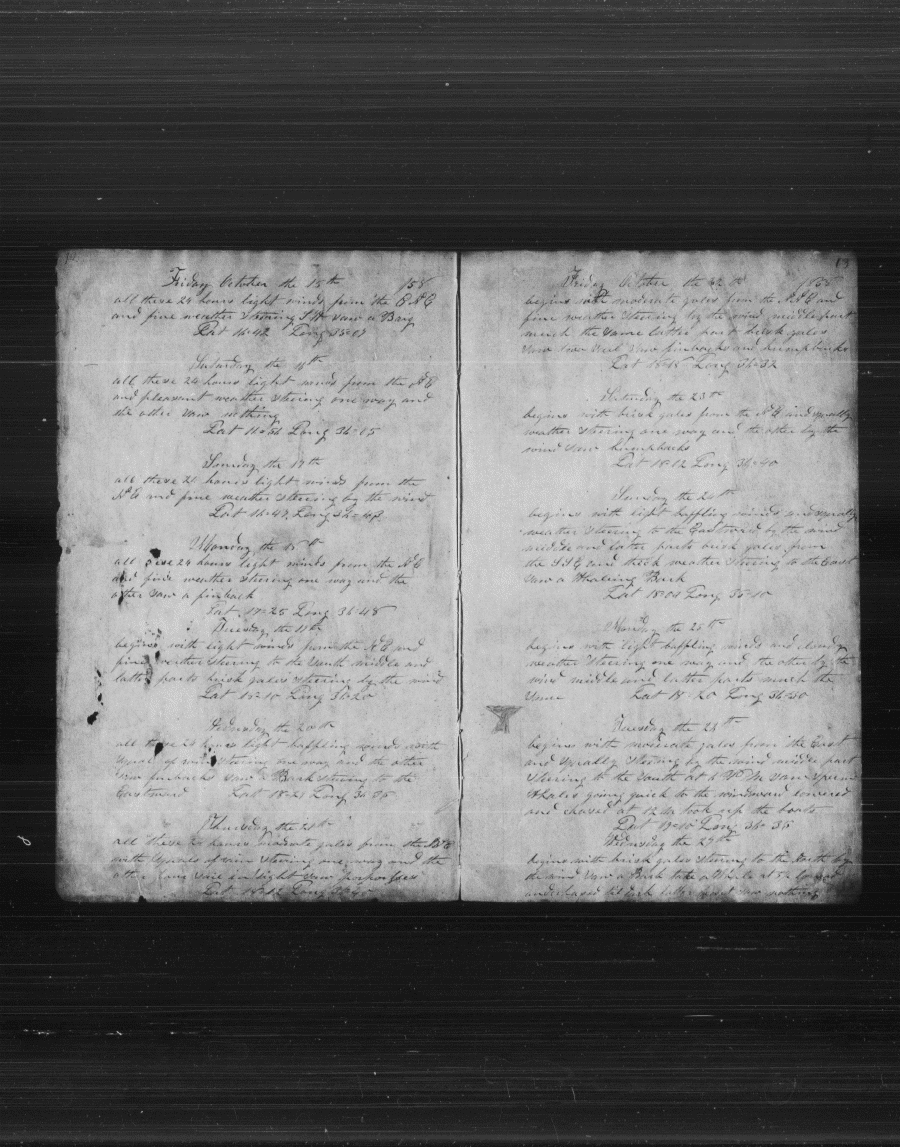 Friday October the 15th 185
all these 24 hours light winds from the E N E
and fine weather steering S W saw a Brig
Lat 16-42 Long 35-07
Saturday the 16th
all these 24 hours light winds from the N E
and pleasant weather steering one way and
the other saw nothing
Lat Long 36-05
Sunday the 17th
all these 24 hours light winds from the
N E and fine weather steering by the wind
Lat 16-47 Long
Monday the
all these 24 hours light winds from the N E
and fine weather steering one way and the
other saw a finback
Lat 18-25 Long 36-48
Tuesday the 19th
begins with light winds from the N E and
fine weather steering to the South middle and
latter parts brisk gales steering by the wind
Lat Long 36-20
the 20th
all these 24 hours light baffling winds with
of wind steering one way and the other
saw finbacks saw a Bark steering to the
Eastward Lat 18-21 Long
Thursday the 21th
all these 24 hours moderate gales from the
with squales of rain steering one way and the
other saw porpoises
Lat 18-12 Long
13
Friday October the 22th 185
begins with moderate gales from the N E and
fine weather steering by the wind middle part
much the same latter part brisk gales
saw finbacks and humpbacks
Lat 18-48 Long 36-32
Saturday the 23th
begins with brisk gales from the N E and squally
weather steering one way and the other by the
wind saw humpbacks
Lat 18-12 Long 36-40
Sunday the 24th
begins with light baffling winds and squally
weather steering to the Eastward by the wind
middle and latter parts brisk gales from
the S S E and thick weather steering to the East
saw a Whaling Bark
Lat 18-04 Long 35-10
Monday the 25th
begins with light baffling winds and cloudy
weather steering one way and the other by the
wind middle and latter parts much the
same Lat 18-20 Long 36-30
Tuesday the 26th
begins with moderate gales from the East
and squally steering by the wind middle part
steering to the South at 6 saw sperm
Whales going quick to the windward lowered
and chased at 12 M took up the boats
Lat Long 36-35
Wednsday the 27th
begins with brisk gales steering to the South by
the wind saw a Bark take a Whale at 5 lowered
and chased til dark latter part saw nothing